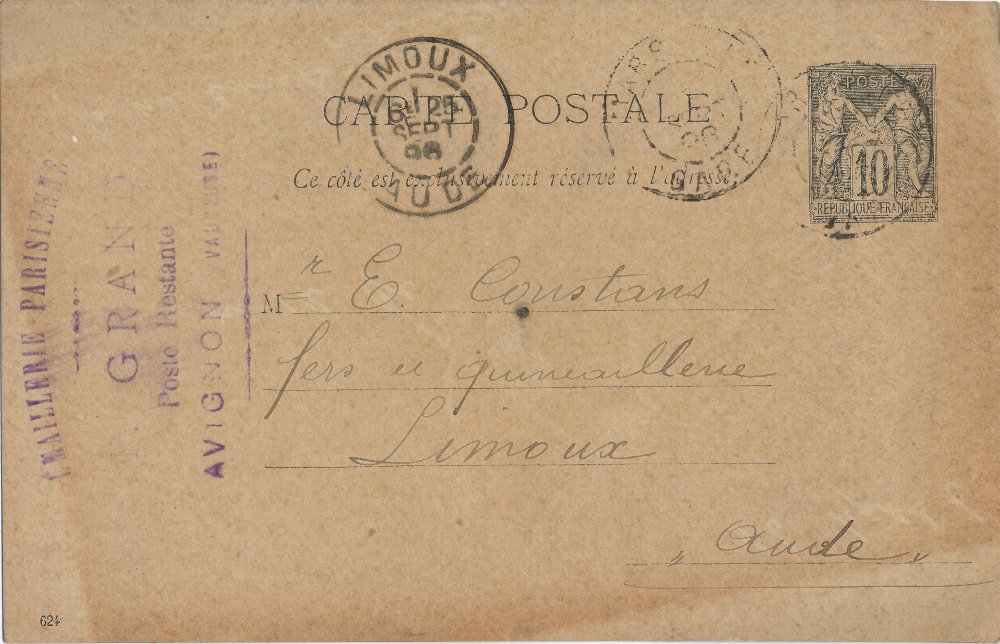 CARTE POSTALE
Ce côté est exclusivement réservé à l'adresse.
LIMOUX
25
SEPT
96
AUDE
GARE
POSTE
10
REPUBLIQUE FRANÇAISE
Mr E. Constans
fers et quincaillerie
Limoux
"Aude"
EMAILLERIE PARISIENNE
GRAND
Poste Restante
AVIGNON (VAUCLUSE)
624